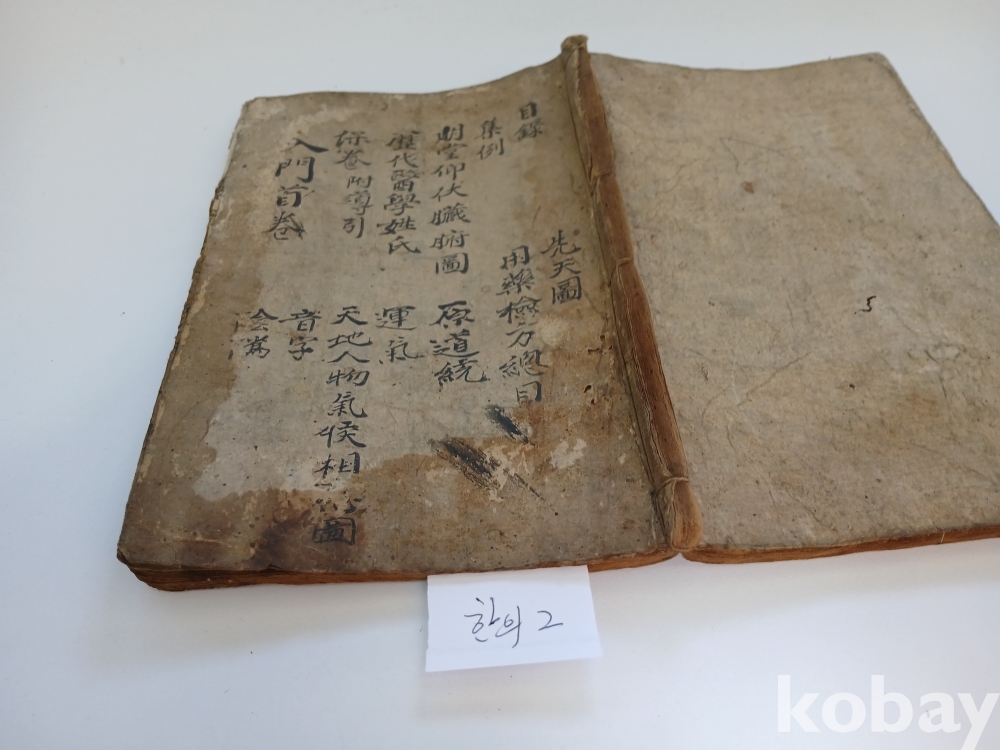 目錄
先天圖
集例
用藥檢方總目
明堂仰伏臟腑圖
原道統
歷代醫學姓氏
運氣
保養附導引
天地人物氣候相圖
音字
入門首卷
陰騭
한의2
kobay